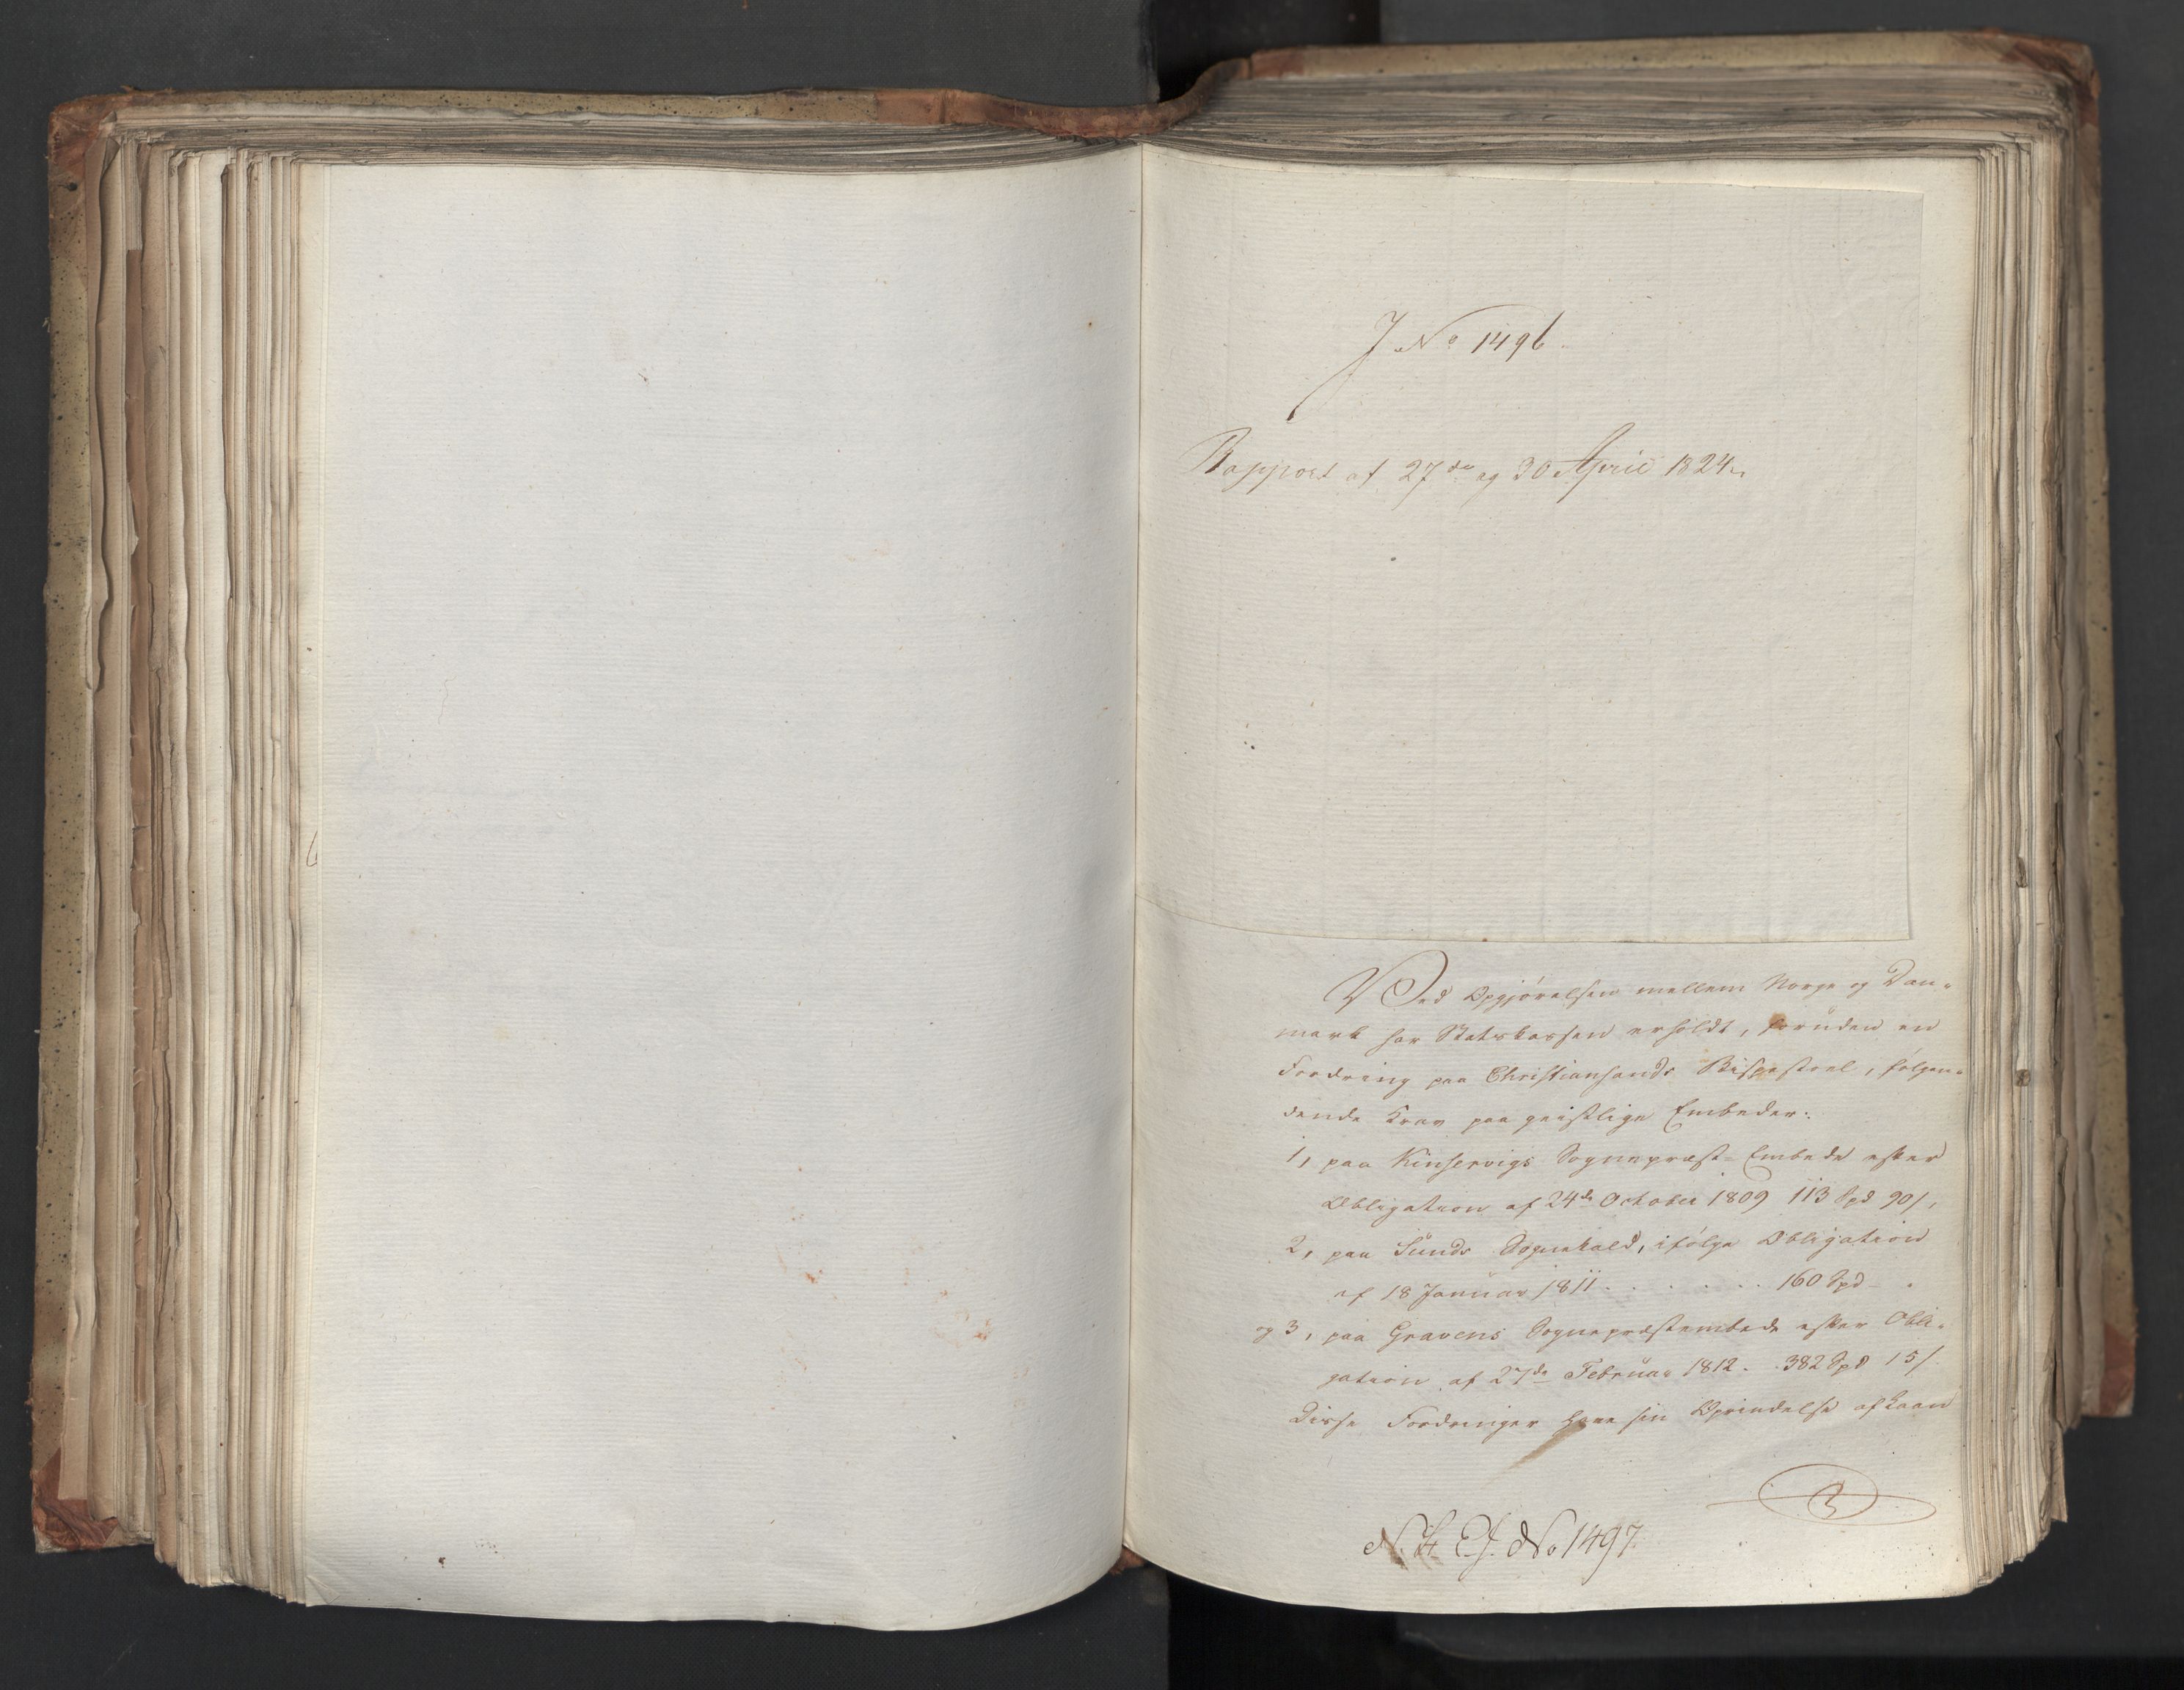 J No 1496.
Rapport af 27de og 30 April 1824.
Ved Opgjørelsen mellem Norge og Dan-
mark har Statskassen erholdt, foruden en
Fordring paa Christiansands Bispestoel, følgen-
dende Krav paa geistlige Embeder:
1, paa Kinservigs Sognepræst-Embede efter
Obligation af 24de October 1809 113 Spd 90/,
2, paa Sunds Sognekald, ifølge Obligation
af 18 Januar 1811 . . . . . . . 160 Spd - .
og 3, paa Gravens Sognepræstembede efter Obli-
gation af 27de Februar 1812 . . 382 Spd 15/.
Disse Fordringer have sin Oprindelse af Laan
3
No 1497.